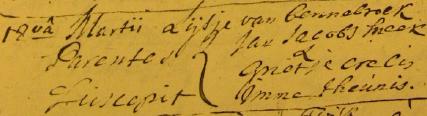 18va Martii Lijsje van Bennebroek
Parentes { Jan Jacobs
& Grietje Crelis
Suscepit Imme theunis.